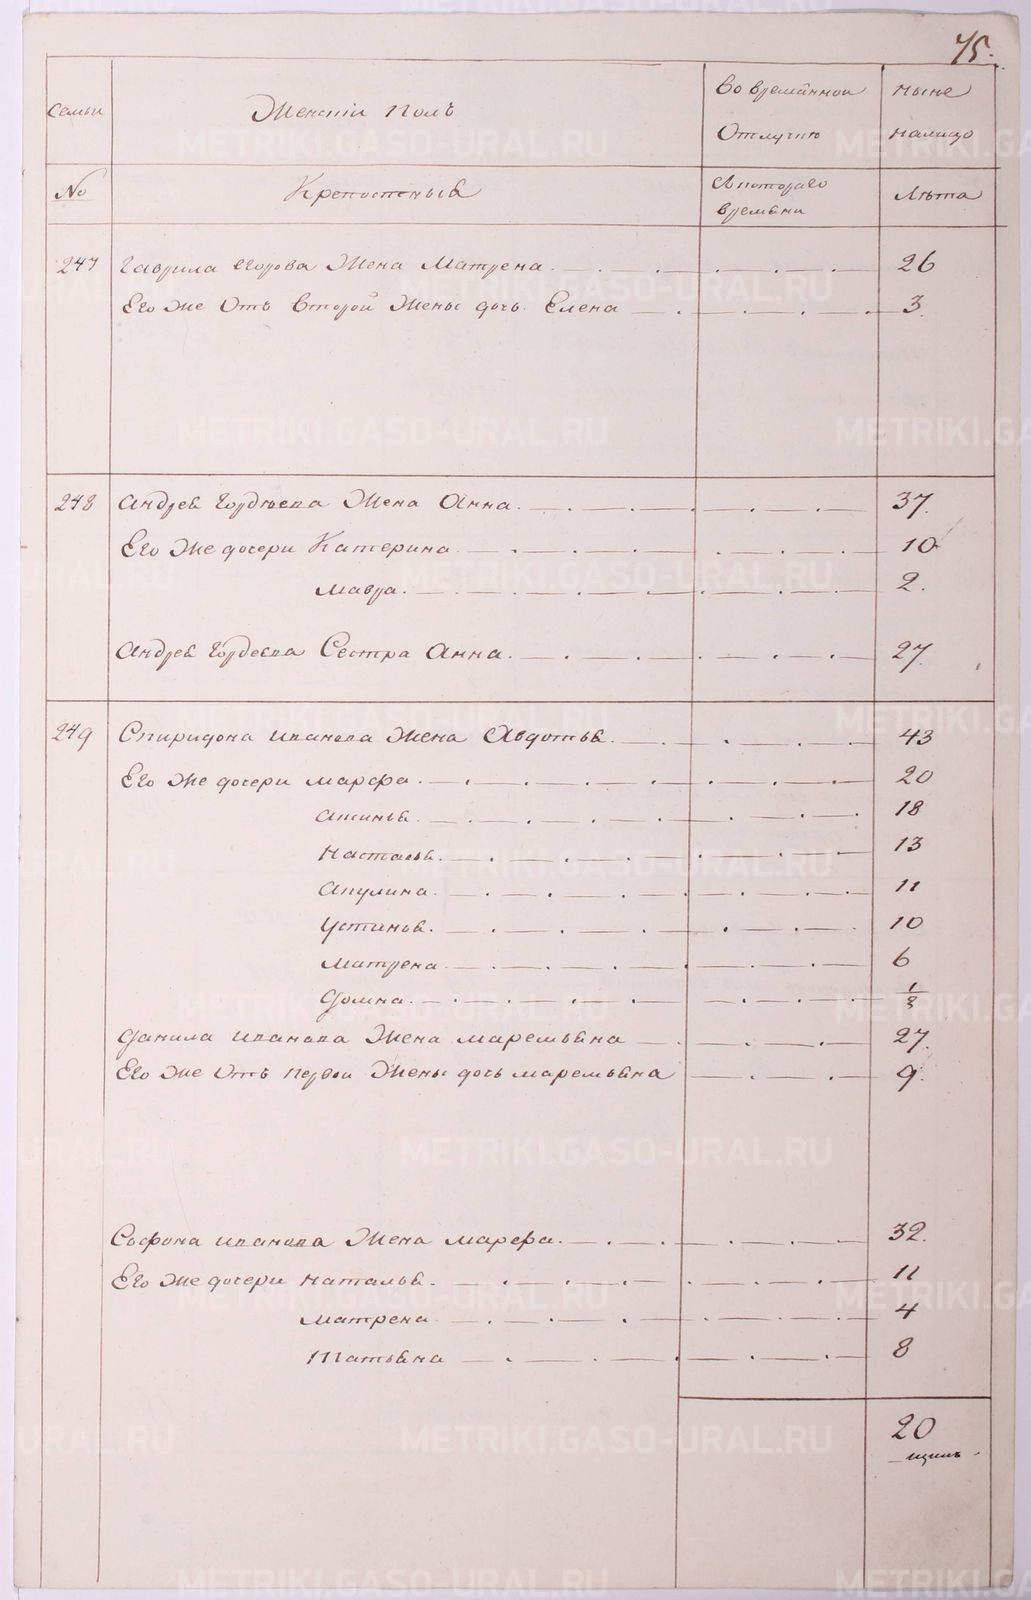 75.
Семьи Женскiй полъ Во временной ныне
Отлучки налицо
No Крепостныя Съ котораго Лѣта
времѣни
247 Гаврила Егорова Жена Матрена 26
Его же Отъ Второй Жены дочь Елена 3.
248 Андрея Гордѣева Жена Анна. 37.
Его же дочери Катерина 10
Мавра. 2.
Андрея Гордеева Сестра Анна. 27.
249 Спиридона Иванова Жена Авдотья. 43
Его же дочери Марфа. 20
Аксинья. 18
Насталья. 13
Акулина. 11
Устинья. 10
Матрена 6
Домна. 1/8
Данила Иванова Жена Маремьяна 27.
Его же Отъ первой Жены дочь Маремьяна 9.
Софона Иванова Жена Марфа. 32.
Его же дочери Наталья. 11
Матрена. 4
Татьяна 8
20
METRIKI.GASO-URAL.RU